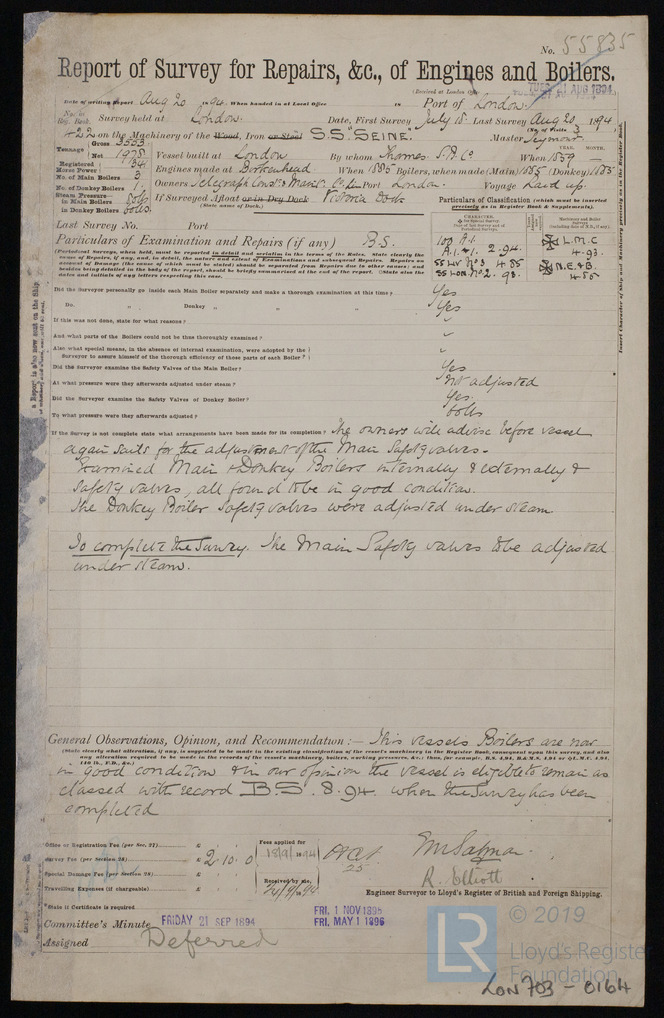 No. 55835
Report of Survey for Repairs, &c., of Engines and Boilers.
(Received at London Office
TUES. 21 AUG 1894
Date of writing Report Aug 20 1894. When handed in at Local Office 18 Port of London.
No. in Reg. Book. Survey held at London. Date, First Survey July 18. Last Survey Aug 20 1894
(No. of Visits 3)
422 on the Machinery of the Wood, Iron or Steel S.S. "SEINE." Master Seymour
Tonnage Gross 3553 Net 1978 Vessel built at London By whom Thames S.B. Co. When 1859
YEAR. MONTH.
Registered Horse Power Engines made at Birkenhead When 1885 Boilers, when made (Main) 1885 (Donkey) 1885
No. of Main Boilers 3
No. of Donkey Boilers 1 Owners Telegraph Const. & Maint. Co. Ld. Port London. Voyage Laid up.
Steam Pressure in Main Boilers
in Donkey Boilers 60lbs. If Surveyed Afloat or in Dry Dock Victoria Dock
(State name of Dock.)
Particulars of Classification (which must be inserted precisely as in Register Book & Supplements).
Last Survey No. Port
Particulars of Examination and Repairs (if any) B.S.
(Periodical Surveys, when held, must be reported in detail and seriatim in terms of the Rules.
100 A.1.
A.1. 2.94.
SS Lon. No. 2. 93.
L.M.C. 4.93.
N.E.&B. 4.85
Insert Character of Ship and Machinery precisely as in the Register Book.
a Report is also now sent on the Ship
Did the Surveyor personally go inside each Main Boiler separately and make a thorough examination at this time? Yes
Do. „ „ Donkey „ „ „ „ Yes
If this was not done, state for what reasons? „
And what parts of the Boilers could not be thus thoroughly examined? „
Also what special means, in the absence of internal examination, were adopted by the
Surveyor to assure himself of the thorough efficiency of those parts of each Boiler? „
Did the Surveyor examine the Safety Valves of the Main Boiler? Yes
At what pressure were they afterwards adjusted under steam? Not adjusted
Did the Surveyor examine the Safety Valves of Donkey Boiler? Yes.
To what pressure were they afterwards adjusted? 60lbs
If the Survey is not complete state what arrangements have been made for its completion? The owners will advise before vessel
again sails for the adjustment of the Main Safety valves.
Examined Main & Donkey Boilers internally & externally &
Safety valves, all found to be in good condition.
The Donkey Boiler Safety valves were adjusted under steam
To complete the Survey. The Main Safety valves to be adjusted
under steam.
General Observations, Opinion, and Recommendation:— This vessels Boilers are now
(State clearly what alteration, if any, is suggested to be made in the existing classification of the vessel's machinery in the Register Book, consequent upon this survey, and also
any alteration required to be made in the records of the vessel's machinery, boilers, working pressures, &c.; thus, for example, B.S. 4,94, B.&M.S. 4,94 or L.M.C. 4,94,
140 lb., F.D., &c.)
in good condition & in our opinion the vessel is eligible to remain as
classed with record B.S. 8.94. when the Survey has been
completed
Office or Registration Fee (per Sec. 27) £
Survey Fee (per Section 28) £ 2.10.0
Special Damage Fee (per Section 28) £
Travelling Expenses (if chargeable) £
Fees applied for
18/9/1894
Received by me,
R. Elliott
Engineer Surveyor to Lloyd's Register of British and Foreign Shipping.
State if Certificate is required
Committee's Minute FRIDAY 21 SEP 1894
FRI. 1 NOV 1895
FRI. MAY 1 1896
Assigned Deferred
LR
© 2019
Lloyd's Register
Foundation
LON 703 - 0164